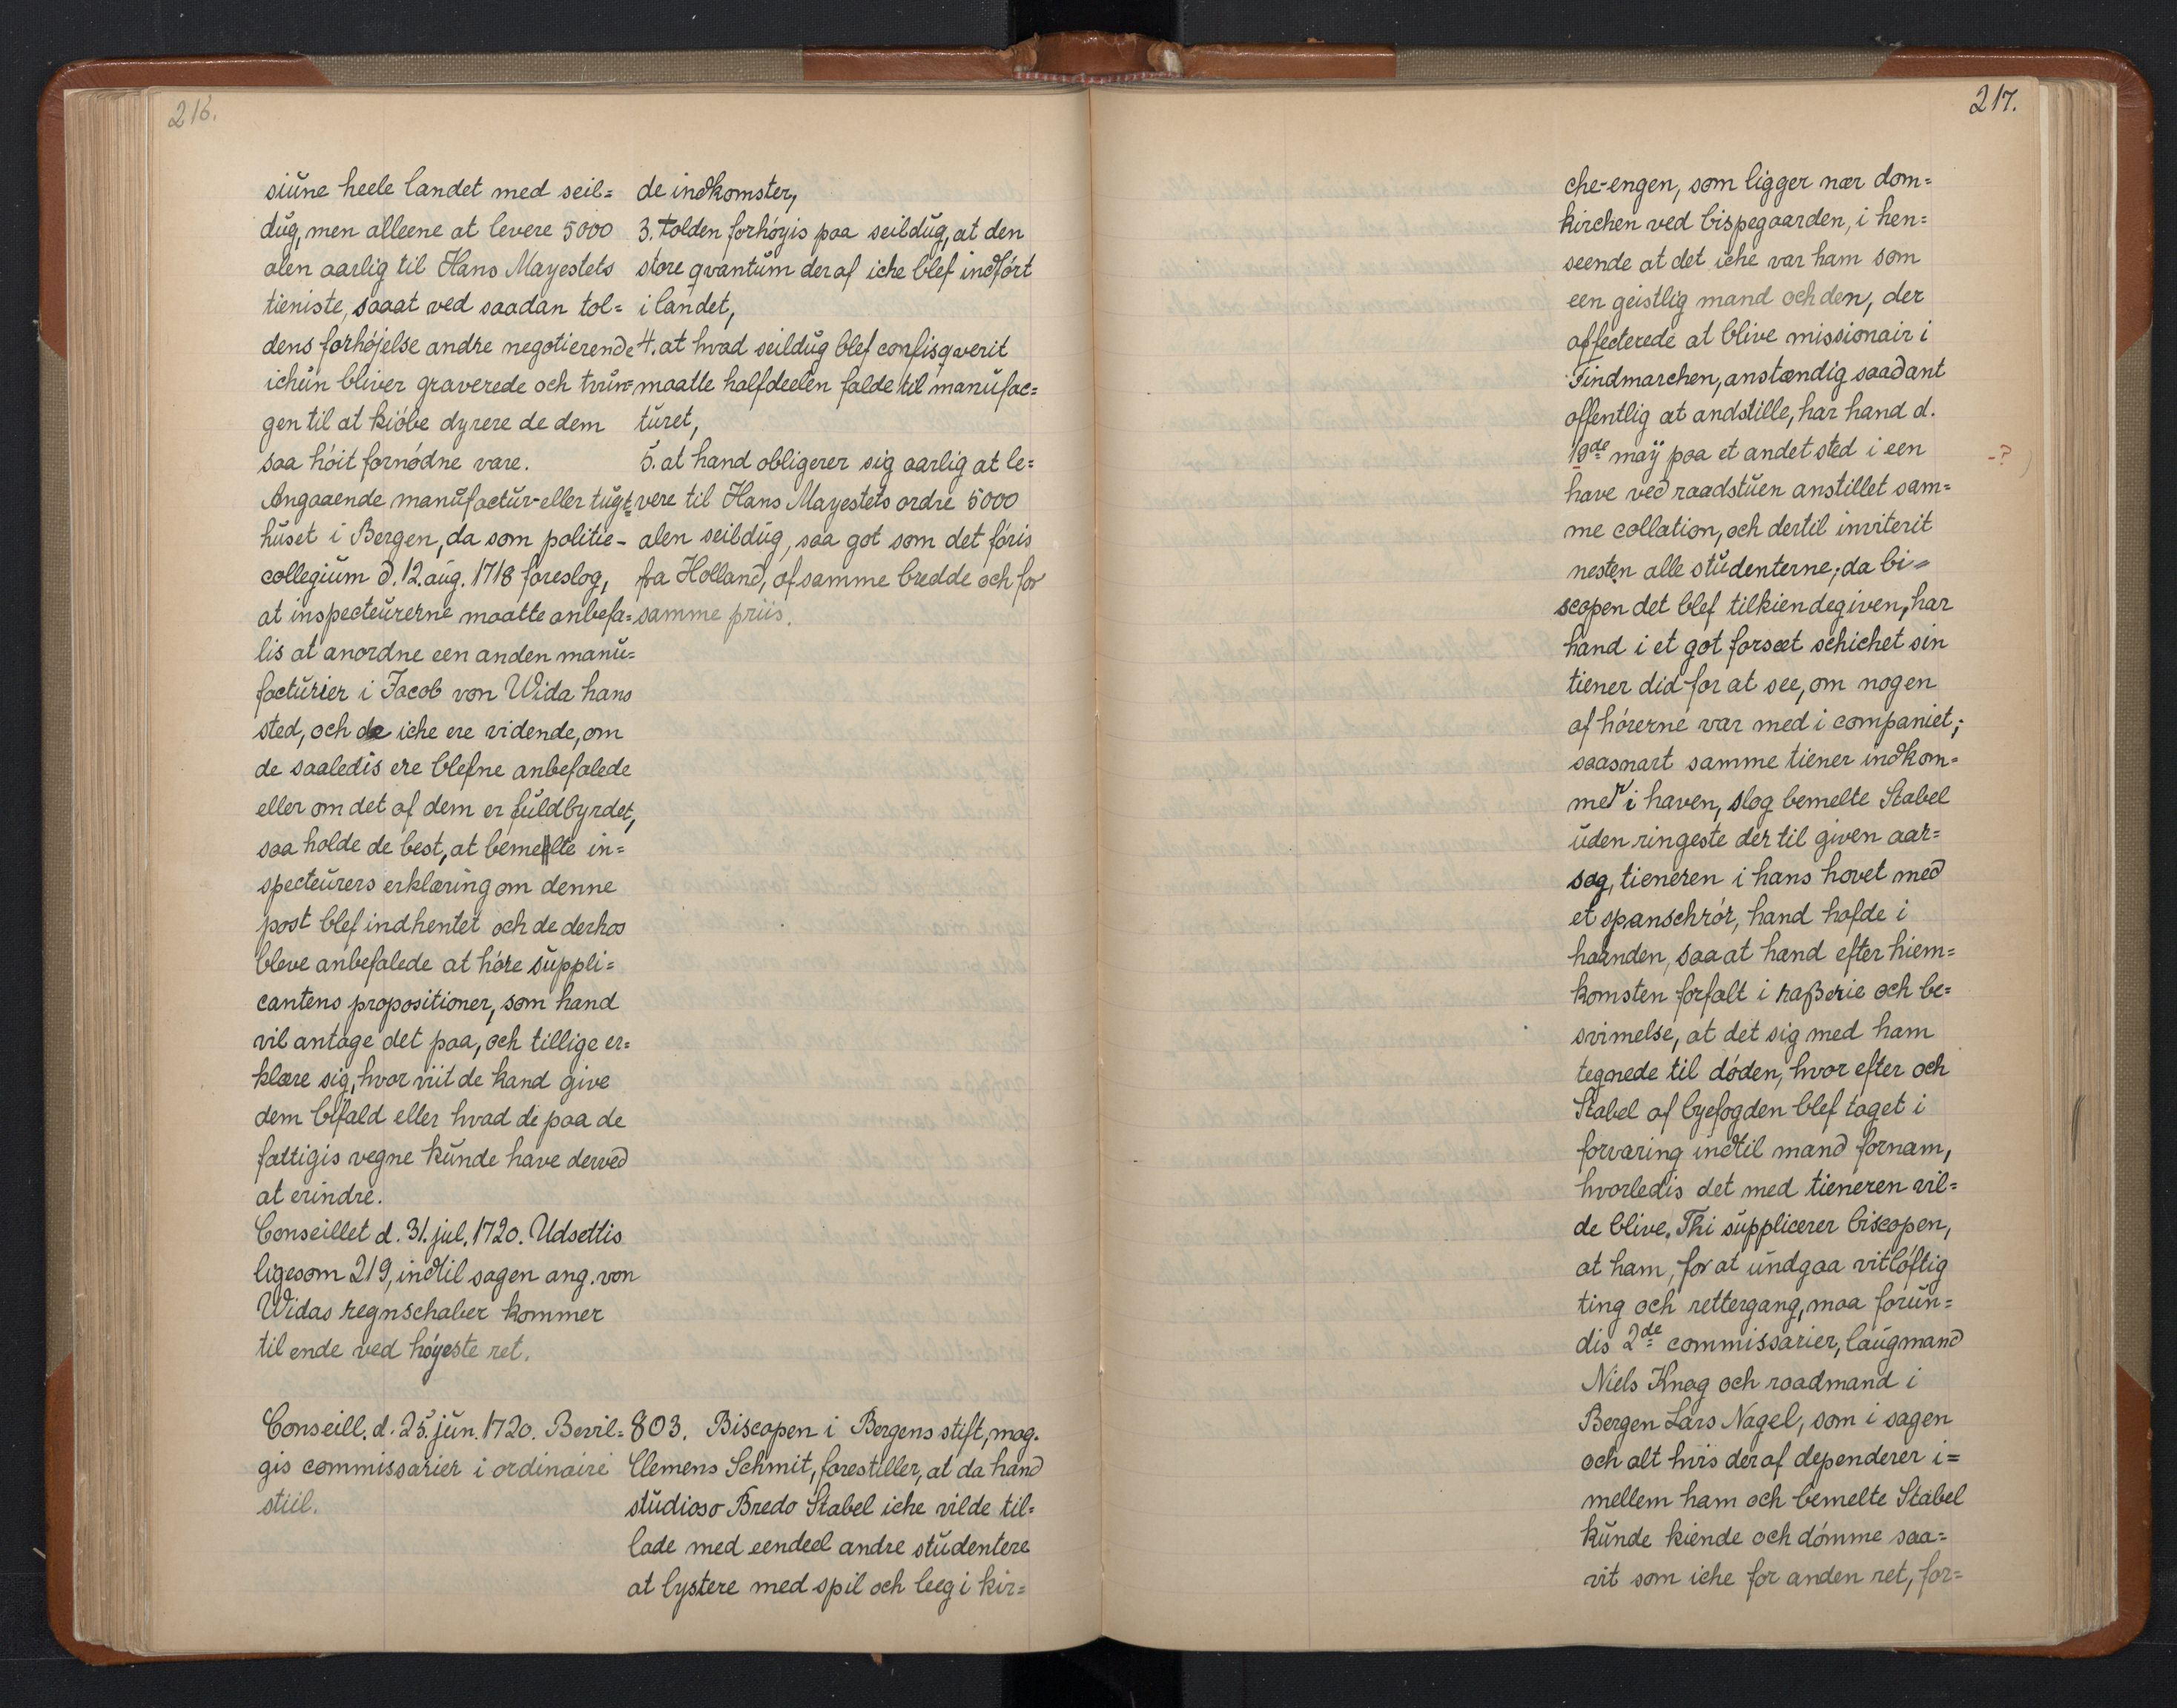 216.
siune heele landet med seil=
dug, men alleene at levere 5000
alen aarlig til Hans Mayestets
tieniste, saaat ved saadan tol=
dens forhøjelse andre negotierende
ichun bliver graverede och tvun=
gen til at kiøbe dyrere de dem
saa høit fornødne vare.
Angaaende manufactur- eller tugt=
huset i Bergen, da som politie-
collegium d. 12. aug. 1718 foreslog,
at inspecteurerne maatte anbefa=
lis at anordne een anden manu=
facturier i Jacob von Wida hans
sted, och de iche ere vidende, om
de saaledis ere blefne anbefalede
eller om det af dem er fuldbyrdet,
saa holde de best, at bemelte in=
specteurers erklæring om denne
post blef indhentet och de derhos
bleve anbefalede at høre suppli=
cantens propositioner, som hand
vil antage det paa, och tillige er=
klære sig, hvor viit de kand give
dem bifald eller hvad de paa de
fattigis vegne kunde have derved
at erindre.
Conseillet d. 31. jul. 1720. Udsettis
ligesom 219, indtil sagen ang. von
Widas regnschaber kommer
til ende ved høyeste ret.
Conseill. d. 25. jun. 1720. Bevil=
gis commissarier i ordinaire
stiil.
de indkomster,
3. tolden forhøyis paa seildug, at den
store qvantum deraf iche blef indført
i landet,
4. at hvad seildug blef confisqverit
maatte halfdeelen falde til manufac=
turet,
5. at hand obligerer sig aarlig at le=
vere til Hans Mayestets ordre 5000
alen seildug, saa got som det føris
fra Holland, af samme bredde och for
samme priis.
803. Biscopen i Bergens stift, mag.
Clemens Schmit, forestiller, at da hand
studioso Bredo Stabel iche vilde til=
lade med eendeel andre studentere
at lystere med spil och leeg i kir=
217.
che-engen, som ligger nær dom=
kirchen ved bispegaarden, i hen=
seende at det iche var ham som
een geistlig mand och den, der
affecterede at blive missionair i
Findmarchen, anstændig saadant
offentlig at andstille, har hand d.
19de maÿ paa et andet sted i een
-?)
have ved raadstuen anstillet sam=
me collation, och dertil inviterit
nesten alle studenterne; da bi=
scopen det blef tilkiendegiven, har
hand i et got forsæt schichet sin
tiener did for at see, om nogen
af hørerne var med i companiet;
saasnart samme tiener indkom=
mer i haven, slog bemelte Stabel
uden ringeste der til given aar=
sag, tieneren i hans hovet med
et spanschrør, hand hafde i
haanden, saaat hand efter hiem=
komsten forfalt i raßerie och be=
svimelse, at det sig med ham
tegnede til døden, hvor efter och
Stabel af byefogden blef taget i
forvaring indtil mand fornam,
hvorledis det med tieneren vil=
de blive. Thi supplicerer biscopen,
at ham, for at undgaa vitløftig
ting och rettergang, maa forun=
dis 2de commissarier, laugmand
Niels Knag och raadmand i
Bergen Lars Nagel, som i sagen
och alt hvis deraf dependerer i=
mellem ham och bemelte Stabel
kunde kiende och dømme saa=
vit som iche for anden ret, for=